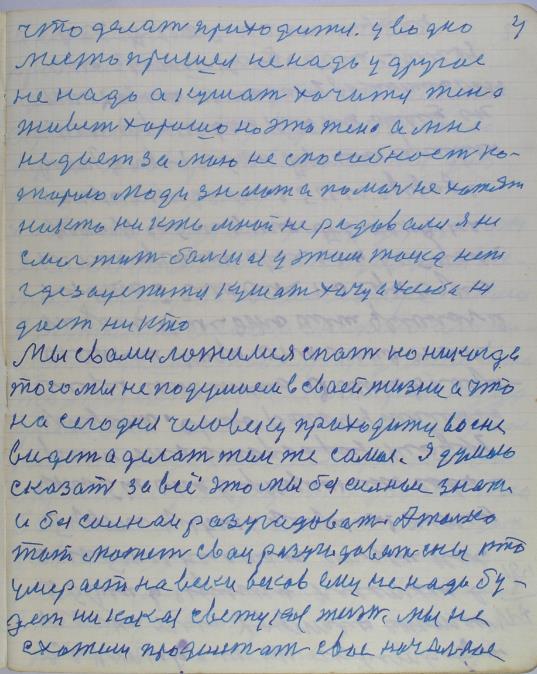 что делат приходится. у водно
место пришел не надо у другое
не надо а кушат хочится жена
живет хорошо но это жена а мне
не дает за мою не способност ко-
торою люди знают а помоч не хотят
никто никто мной не радовался я не
смог жит больше у этим тоска нет
где зацепится кушат хочу а хлеба не
дает никто
Мы свами ложимся спат но никогда
того мы не подумаем в своей жизни а что
на сегодня человеку приходится восне
видет а делат тем же самы. Я думаю
сказат за всё это мы безсилные знат
и безсилнаи разугадоват. А толко
тот может сваи разугадоват сны кто
умерает на веки веков ему не надо бу-
дет ни какая светская жизн. мы не
схотели продолжат свое началное